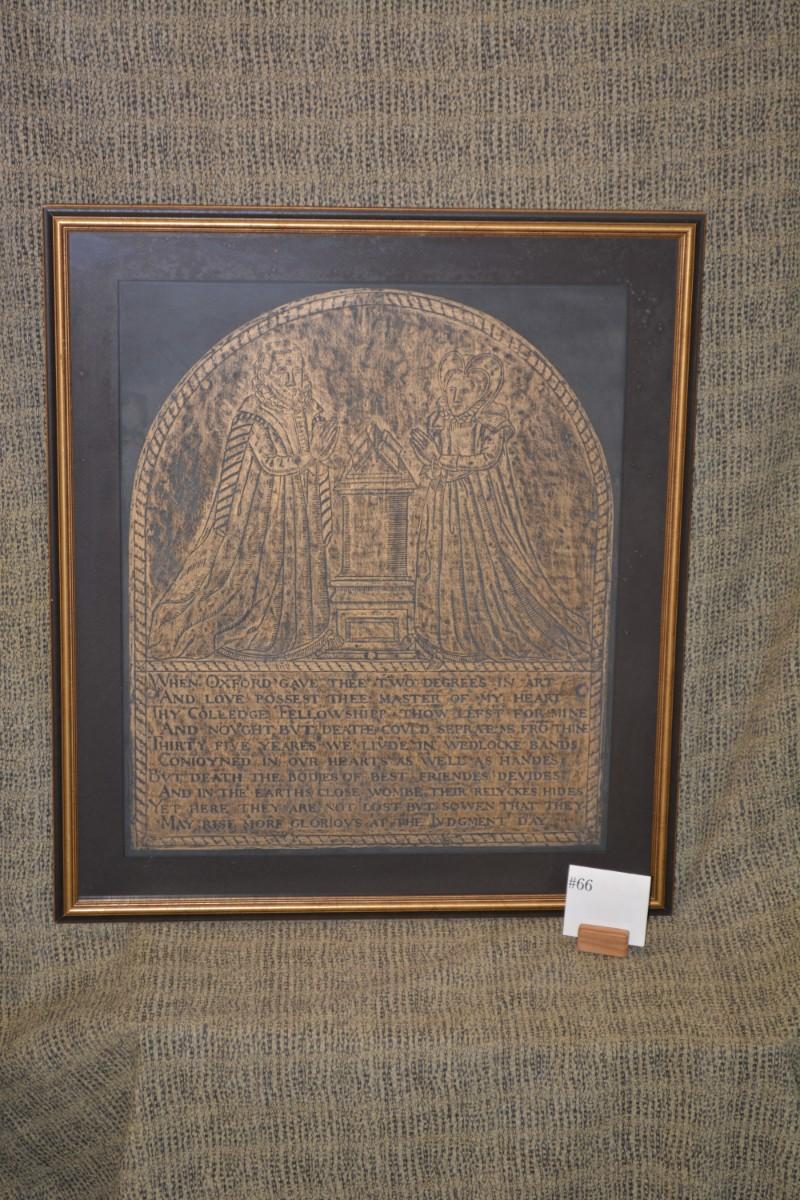 WHEN OXFORD GAVE THEE TWO DEGREES IN ART
AND LOVE POSSEST THEE MASTER OF MY HEART
THY COLLEDGE FELLOWSHIPP THOW LEFST FOR MINE
AND NOVGHT BVT DEATH COVLD SEPRATE FRŌ THINE
THIRTY FIVE YEARES WE LIVDE IN WEDLOCKE BANDS
CONIOYNED IN OVR HEARTS AS WELL AS HANDES
BVT DEATH THE BODIES OF BEST FRIENDES DEVIDES
AND IN THE EARTHS CLOSE WOMBE THEIR RELYCKES HIDES
YET HERE THEY ARE NOT LOST BVT SOWEN THAT THEY
MAY RISE MORE GLORIOVS AT THE IVDGMENT DAY
#66